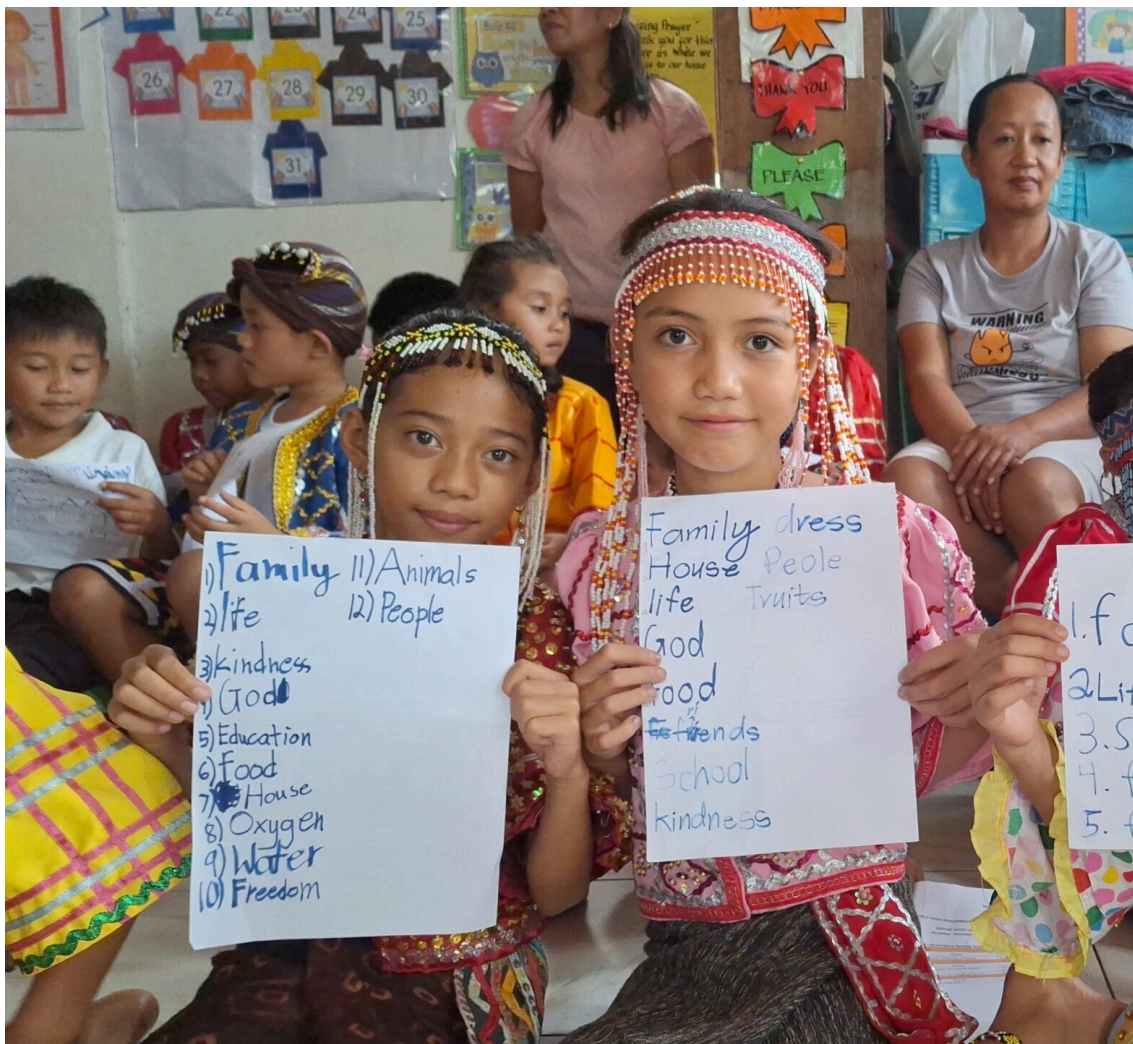 22
23
24
25
26
27
28
29
30
31
THANK YOU
PLEASE
WARNING
1) Family
2) life
3) kindness
4) God
5) Education
6) Food
7) House
8) Oxygen
9) Water
10) Freedom
11) Animals
12) People
Family dress
House Peole
life Truits
God
food
friends
School
kindness
2
3. S
4. f
5. f